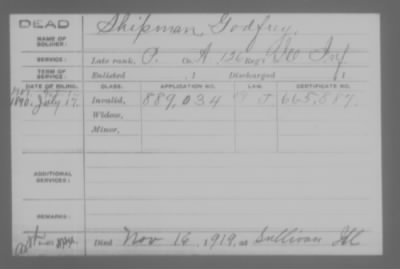 DEAD
NAME OF SOLDIER: Shipman, Godfrey,
SERVICE: Late rank, P. Co. A, 126 Reg't Inf
TERM OF SERVICE: Enlisted , 1 Discharged , 1
DATE OF FILING. CLASS. APPLICATION NO. LAW. CERTIFICATE NO.
1890, July 17. Invalid, 889,034 665,887
Widow,
Minor,
ADDITIONAL SERVICES:
REMARKS:
Died Nov 16, 1919, at Sullivan Ill